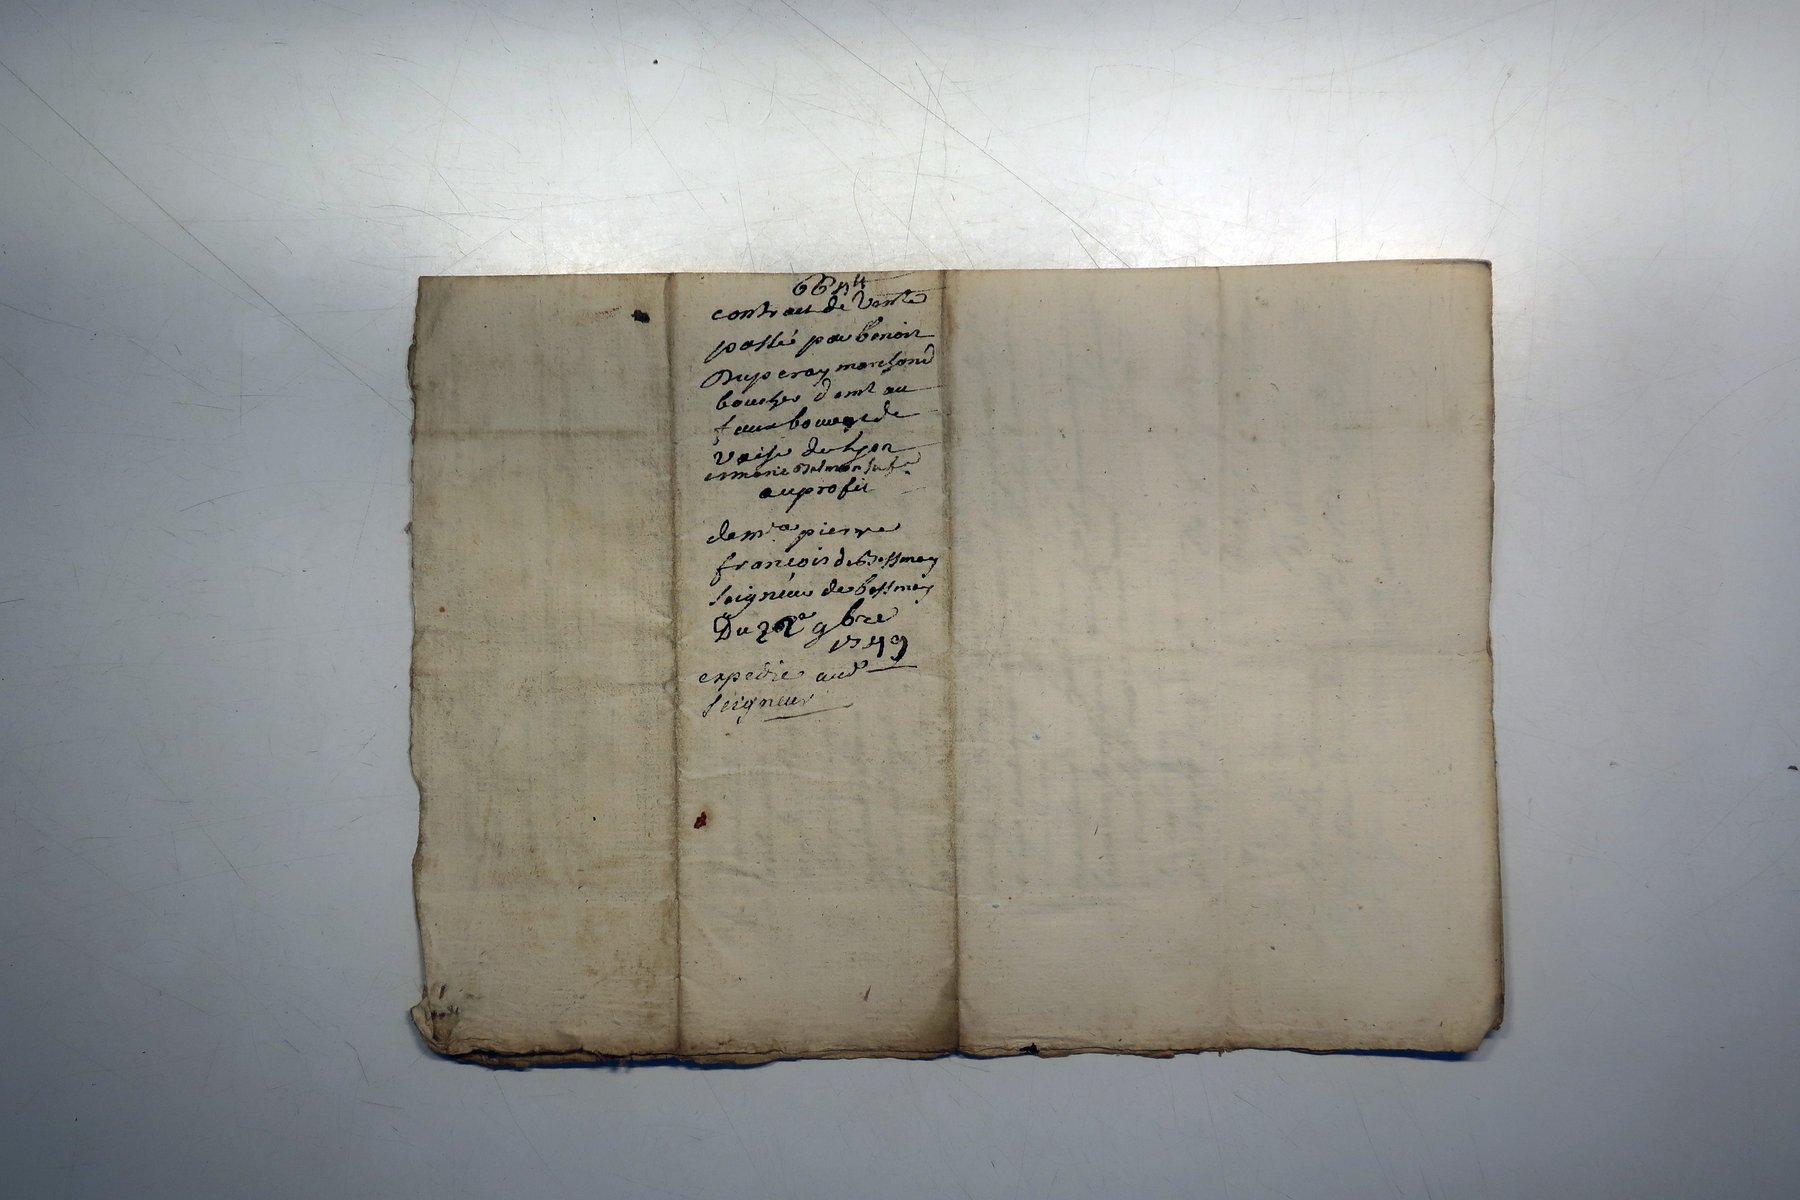 contract de Vente
passé par benoit
Duperay marchand
boucher demt au
faux bourg de
vaise de Lyon
et marie Delmon sa fe
au profit
de mre pierre
françois de Bessenay
seigneur de bessenay
Du 22e 9bre
1749
expedié aud
seigneur